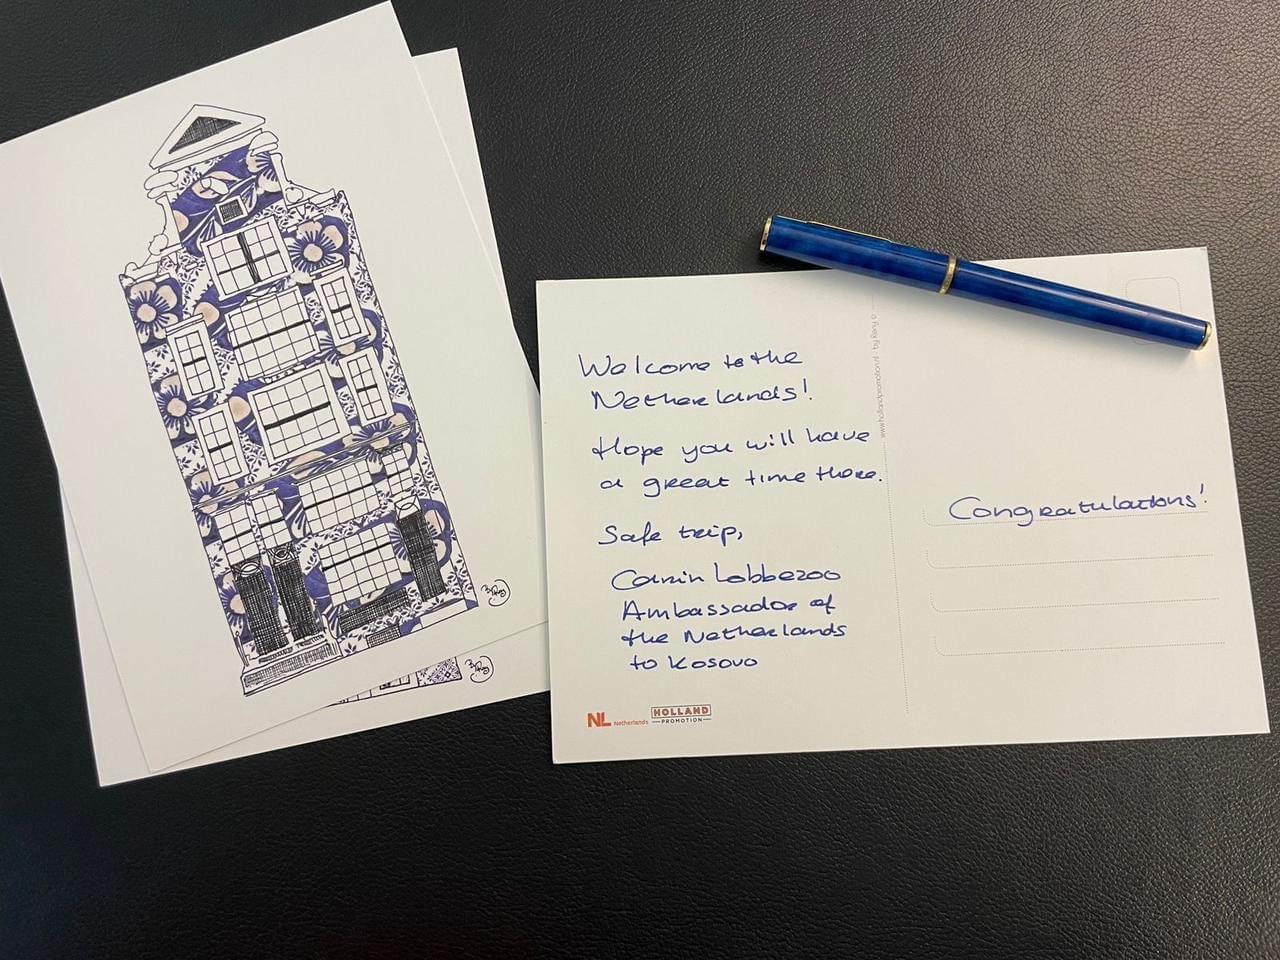 Welcome to the
Netherlands!
Hope you will have
a great time there.
Safe trip,
Carin Lobbezoo
Ambassador of
the Netherlands
to Kosovo
NL Netherlands
HOLLAND
PROMOTION
www.hollandpromotion.nl - by Romy ©
Congratulations!